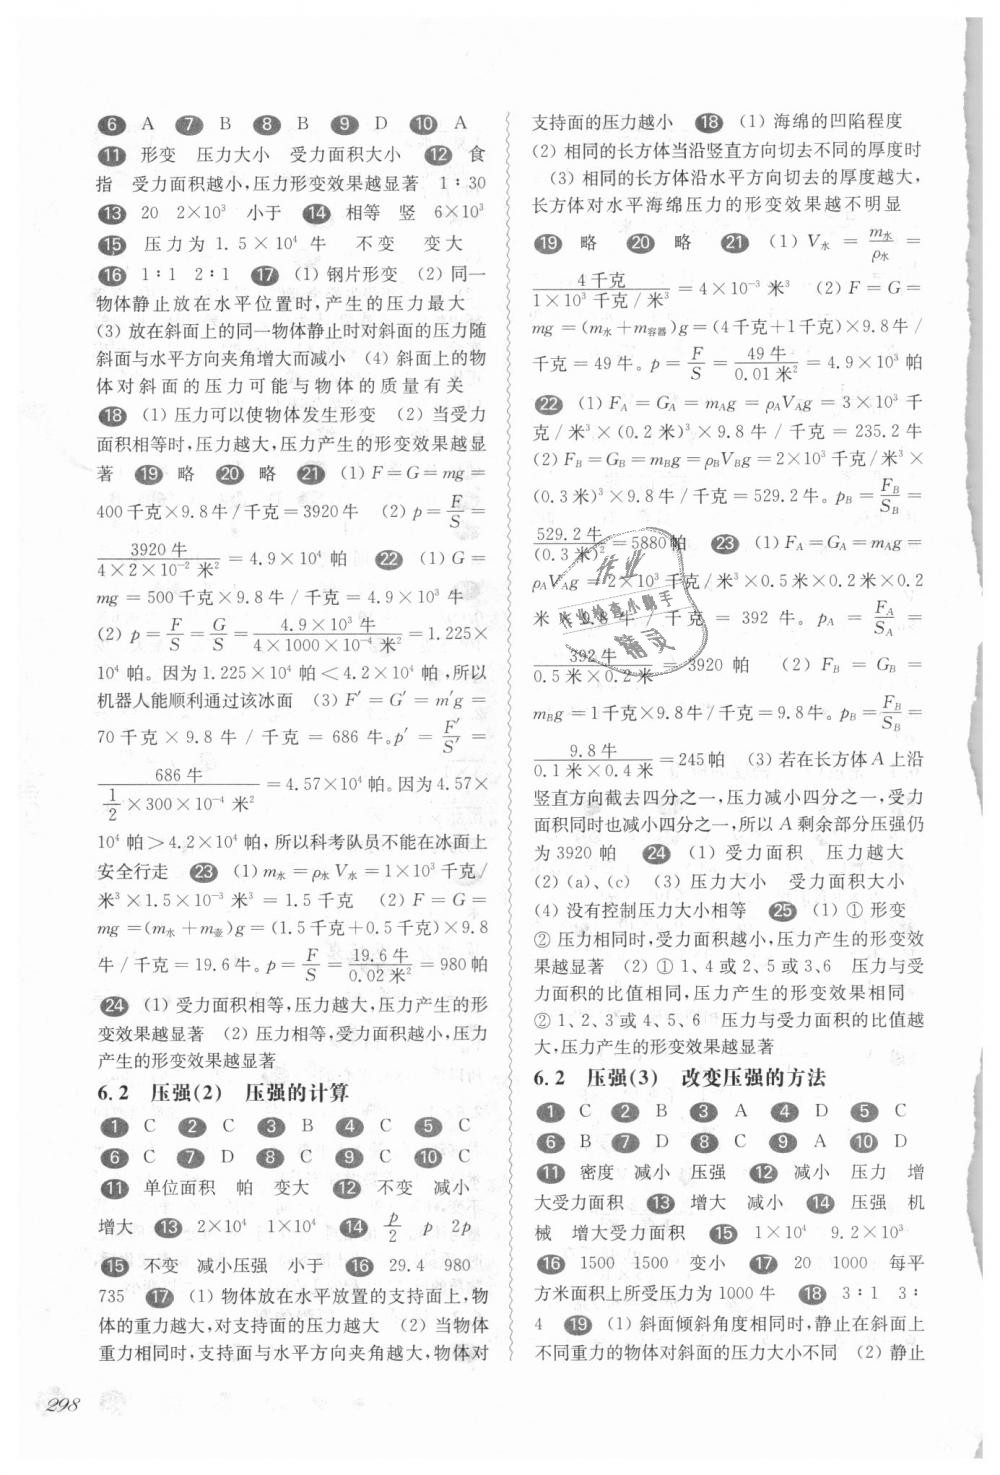 ⑥ A ⑦ B ⑧ B ⑨ D ⑩ A
⑪ 形变 压力大小 受力面积大小 ⑫ 食
指 受力面积越小,压力形变效果越显著 1∶30
⑬ 20 2×10³ 小于 ⑭ 相等 竖 6×10³
⑮ 压力为 1.5×10⁴ 牛 不变 变大
⑯ 1∶1 2∶1 ⑰ (1) 钢片形变 (2) 同一
物体静止放在水平位置时,产生的压力最大
(3) 放在斜面上的同一物体静止时对斜面的压力随
斜面与水平方向夹角增大而减小 (4) 斜面上的物
体对斜面的压力可能与物体的质量有关
⑱ (1) 压力可以使物体发生形变 (2) 当受力
面积相等时,压力越大,压力产生的形变效果越显
著 ⑲ 略 ⑳ 略 ㉑ (1) F=G=mg=
400千克×9.8牛/千克=3920牛 (2) p=F/S=
3920牛/(4×2×10⁻²米²)=4.9×10⁴帕 ㉒ (1) G=
mg=500千克×9.8牛/千克=4.9×10³牛
(2) p=F/S=G/S=4.9×10³牛/(4×1000×10⁻⁴米²)=1.225×
10⁴帕。因为1.225×10⁴帕<4.2×10⁴帕,所以
机器人能顺利通过该冰面 (3) F′=G′=m′g=
70千克×9.8牛/千克=686牛。p′=F′/S′=
686牛/(1/2×300×10⁻⁴米²)=4.57×10⁴帕。因为4.57×
10⁴帕>4.2×10⁴帕,所以科考队员不能在冰面上
安全行走 ㉓ (1) m水=ρ水V水=1×10³千克/
米³×1.5×10⁻³米³=1.5千克 (2) F=G=
mg=(m水+m壶)g=(1.5千克+0.5千克)×9.8
牛/千克=19.6牛。p=F/S=19.6牛/0.02米²=980帕
㉔ (1) 受力面积相等,压力越大,压力产生的形
变效果越显著 (2) 压力相等,受力面积越小,压力
产生的形变效果越显著
6.2 压强(2) 压强的计算
① C ② C ③ B ④ C ⑤ C
⑥ C ⑦ D ⑧ C ⑨ C ⑩ C
⑪ 单位面积 帕 变大 ⑫ 不变 减小
增大 ⑬ 2×10⁴ 1×10⁴ ⑭ p/2 p 2p
⑮ 不变 减小压强 小于 ⑯ 29.4 980
735 ⑰ (1) 物体放在水平放置的支持面上,物
体的重力越大,对支持面的压力越大 (2) 当物体
重力相同时,支持面与水平方向夹角越大,物体对
298
支持面的压力越小 ⑱ (1) 海绵的凹陷程度
(2) 相同的长方体当沿竖直方向切去不同的厚度时
(3) 相同的长方体沿水平方向切去的厚度越大,
长方体对水平海绵压力的形变效果越不明显
⑲ 略 ⑳ 略 ㉑ (1) V水=m水/ρ水=
4千克/(1×10³千克/米³)=4×10⁻³米³ (2) F=G=
mg=(m水+m容器)g=(4千克+1千克)×9.8牛/
千克=49牛。p=F/S=49牛/0.01米²=4.9×10³帕
㉒ (1) F_A=G_A=m_Ag=ρ_AV_Ag=3×10³千
克/米³×(0.2米)³×9.8牛/千克=235.2牛
(2) F_B=G_B=m_Bg=ρ_BV_Bg=2×10³千克/米³×
(0.3米)³×9.8牛/千克=529.2牛。p_B=F_B/S_B=
529.2牛/(0.3米)²=5880帕 ㉓ (1) F_A=G_A=m_Ag=
ρ_AV_Ag=2×10³千克/米³×0.5米×0.2米×0.2
米×9.8牛/千克=392牛。p_A=F_A/S_A=
392牛/(0.5米×0.2米)=3920帕 (2) F_B=G_B=
m_Bg=1千克×9.8牛/千克=9.8牛。p_B=F_B/S_B=
9.8牛/(0.1米×0.4米)=245帕 (3) 若在长方体A上沿
竖直方向截去四分之一,压力减小四分之一,受力
面积同时也减小四分之一,所以A剩余部分压强仍
为3920帕 ㉔ (1) 受力面积 压力越大
(2) (a)、(c) (3) 压力大小 受力面积大小
(4) 没有控制压力大小相等 ㉕ (1) ① 形变
② 压力相同时,受力面积越小,压力产生的形变效
果越显著 (2) ① 1、4或2、5或3、6 压力与受
力面积的比值相同,压力产生的形变效果相同
② 1、2、3或4、5、6 压力与受力面积的比值越
大,压力产生的形变效果越显著
6.2 压强(3) 改变压强的方法
① C ② B ③ A ④ D ⑤ C
⑥ B ⑦ D ⑧ C ⑨ A ⑩ D
⑪ 密度 减小 压强 ⑫ 减小 压力 增
大受力面积 ⑬ 增大 减小 ⑭ 压强 机
械 增大受力面积 ⑮ 1×10⁴ 9.2×10³
⑯ 1500 1500 变小 ⑰ 20 1000 每平
方米面积上所受压力为1000牛 ⑱ 3∶1 3∶
4 ⑲ (1) 斜面倾斜角度相同时,静止在斜面上
不同重力的物体对斜面的压力大小不同 (2) 静止
作业
作业检查小助手
精灵